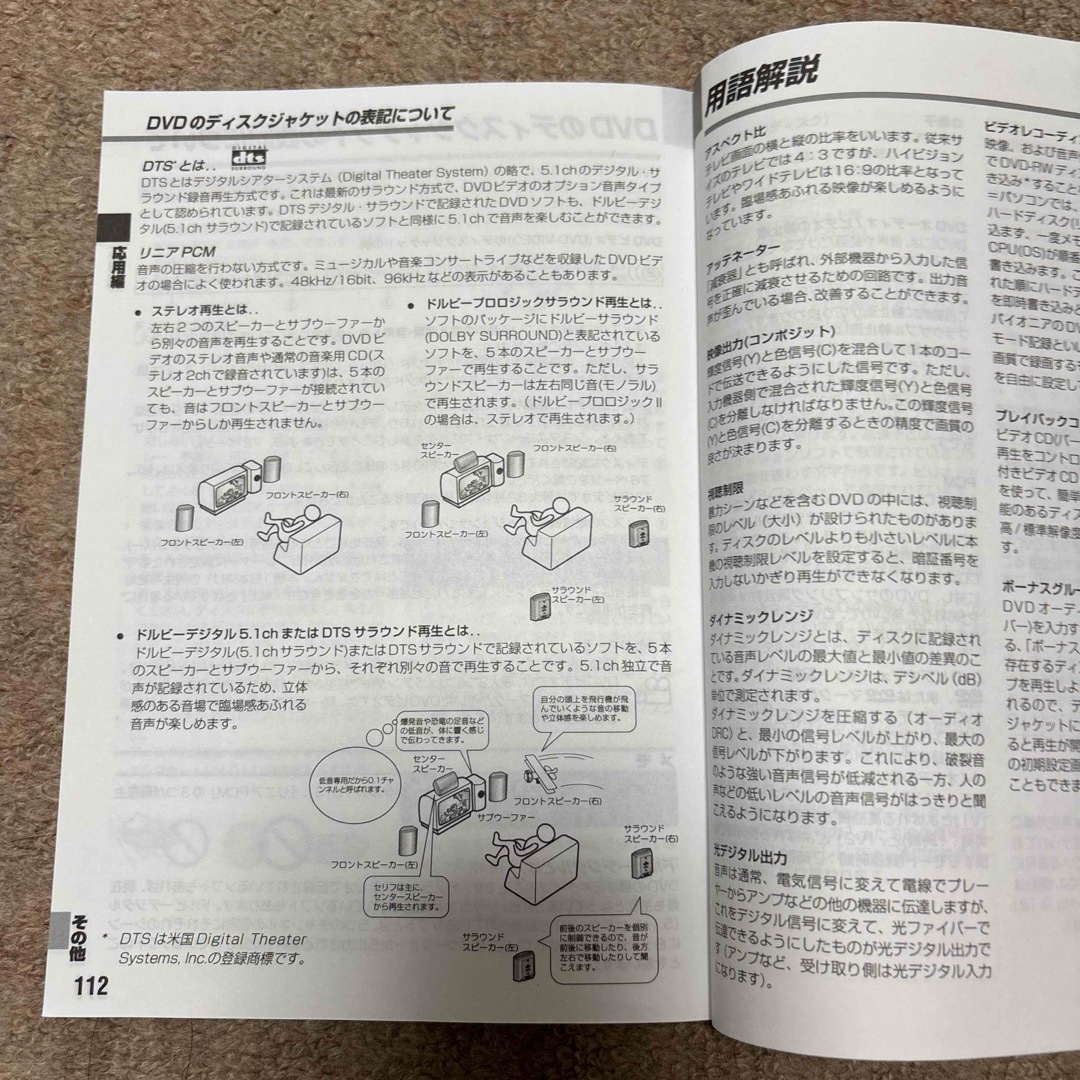 DVDのディスクジャケットの表記について
DTS*とは..
DIGITAL
dts
SURROUND
DTSとはデジタルシアターシステム（Digital Theater System）の略で、5.1chのデジタル・サ
ラウンド録音再生方式です。これは最新のサラウンド方式で、DVDビデオのオプション音声タイプ
として認められています。DTSデジタル・サラウンドで記録されたDVDソフトも、ドルビーデジ
タル(5.1ch サラウンド)で記録されているソフトと同様に5.1chで音声を楽しむことができます。
応用編
リニアPCM
音声の圧縮を行わない方式です。ミュージカルや音楽コンサートライブなどを収録したDVDビデ
オの場合によく使われます。48kHz/16bit、96kHzなどの表示があることもあります。
● ステレオ再生とは..
左右2つのスピーカーとサブウーファーか
ら別々の音を再生することです。DVDビ
デオのステレオ音声や通常の音楽用CD(ス
テレオ2chで録音されています)は、5本の
スピーカーとサブウーファーが接続されてい
ても、音はフロントスピーカーとサブウー
ファーからしか再生されません。
フロントスピーカー(右)
フロントスピーカー(左)
● ドルビープロロジックサラウンド再生とは..
ソフトのパッケージにドルビーサラウンド
(DOLBY SURROUND)と表記されている
ソフトを、5本のスピーカーとサブウー
ファーで再生することです。ただし、サラ
ウンドスピーカーは左右同じ音(モノラル)
で再生されます。（ドルビープロロジックⅡ
の場合は、ステレオで再生されます。）
センター
スピーカー
フロントスピーカー(右)
サラウンド
スピーカー(右)
フロントスピーカー(左)
サラウンド
スピーカー(左)
● ドルビーデジタル5.1chまたはDTSサラウンド再生とは..
ドルビーデジタル(5.1chサラウンド)またはDTSサラウンドで記録されているソフトを、5本
のスピーカーとサブウーファーから、それぞれ別々の音で再生することです。5.1ch独立で音
声が記録されているため、立体
感のある音場で臨場感あふれる
音声が楽しめます。
爆発音や恐竜の足音など
の低音が、体に響く感じ
で伝わってきます。
自分の頭上を飛行機が飛
んでいくような音の移動
や立体感を楽しめます。
低音専用だから0.1チャ
ンネルと呼ばれます。
センター
スピーカー
フロントスピーカー(右)
サブウーファー
サラウンド
スピーカー(右)
フロントスピーカー(左)
セリフは主に、
センタースピーカー
から再生されます。
サラウンド
スピーカー(左)
前後のスピーカーを個別
に制御できるので、音が
前後に移動したり、後方
左右で移動したりして聞
こえます。
その他
* DTSは米国Digital Theater
Systems, Inc.の登録商標です。
112
用語解説
アスペクト比
テレビ画面の横と縦の比率をいいます。従来サ
イズのテレビでは4：3ですが、ハイビジョン
テレビやワイドテレビは16:9の比率となって
います。臨場感あふれる映像が楽しめるように
なっています。
アッテネーター
「減衰器」とも呼ばれ、外部機器から入力した信
号を正確に減衰させるための回路です。出力音
声が歪んでいる場合、改善することができます。
映像出力(コンポジット)
輝度信号(Y)と色信号(C)を混合して1本のコー
ドで伝送できるようにした信号です。ただし、
入力機器側で混合された輝度信号(Y)と色信号
(C)を分離しなければなりません。この輝度信号
(Y)と色信号(C)を分離するときの精度で画質の
良さが決まります。
視聴制限
暴力シーンなどを含むDVDの中には、視聴制
限のレベル（大小）が設けられたものがありま
す。ディスクのレベルよりも小さいレベルに本
機の視聴制限レベルを設定すると、暗証番号を
入力しないかぎり再生ができなくなります。
ダイナミックレンジ
ダイナミックレンジとは、ディスクに記録され
ている音声レベルの最大値と最小値の差異のこ
とです。ダイナミックレンジは、デシベル（dB）
単位で測定されます。
ダイナミックレンジを圧縮する（オーディオ
DRC）と、最小の信号レベルが上がり、最大の
信号レベルが下がります。これにより、破裂音
のような強い音声信号が低減される一方、人の
声などの低いレベルの音声信号がはっきりと聞
こえるようになります。
光デジタル出力
音声は通常、電気信号に変えて電線でプレー
ヤーからアンプなどの他の機器に伝達しますが、
これをデジタル信号に変えて、光ファイバーで
伝達できるようにしたものが光デジタル出力で
す(アンプなど、受け取り側は光デジタル入力
になります)。
ビデオレコーディ
映像、および音声
でDVD-RWディ
き込み*すること
＝パソコンでは、
ハードディスク(
込まず、一度メモ
CPU(OS)が最
書き込みます。こ
れた順にハード
を即時書き込み
パイオニアのDV
モード記録とい
画質で録画する
を自由に設定し
プレイバックコ
ビデオCD(バー
再生をコントロ
付きビデオCD
を使って、簡単
能のあるディス
高/標準解像度
す。
ボーナスグルー
DVDオーディ
バー)を入力す
る、「ボーナス
存在するディ
プを再生しよ
れるので、デ
ジャケットに
ると再生が開
の初期設定画
こともできま